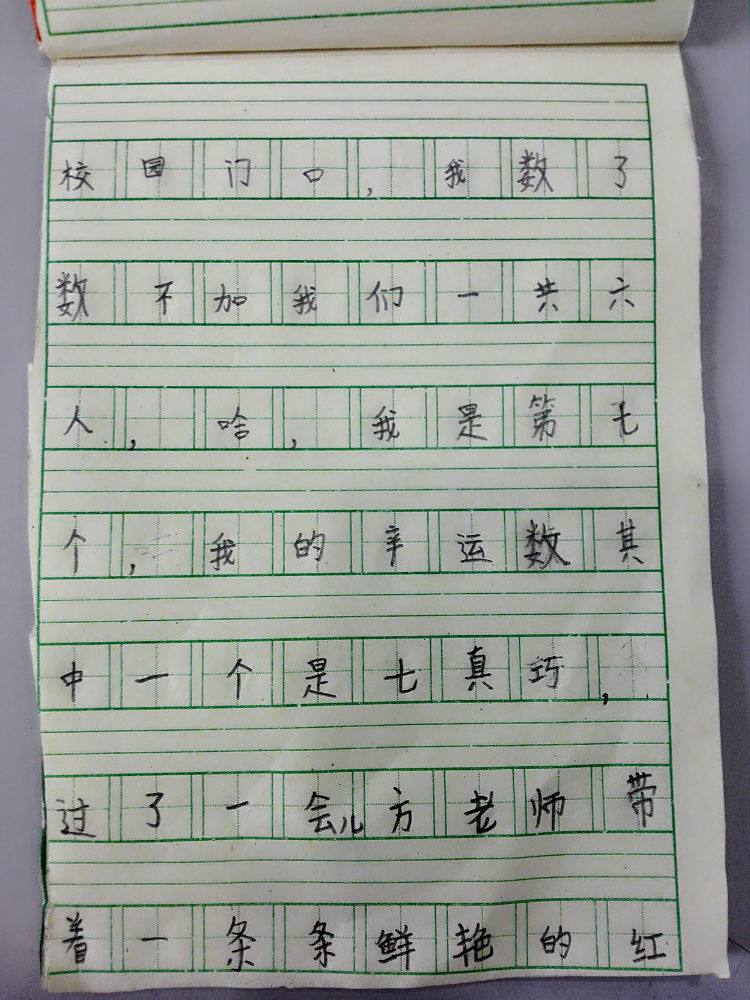 校园门口,我数了
数不加我们一共六
人,哈,我是第七
个,我的辛运数其
中一个是七真巧,
过了一会儿方老师带
着一条条鲜艳的红